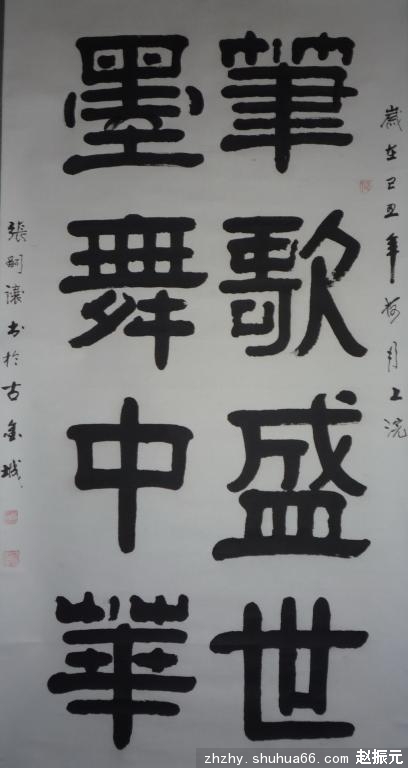 歲在己丑年荷月上浣
筆歌盛世
墨舞中華
張嗣讓書於古金城
zhzhy.shuhua66.com 赵振元